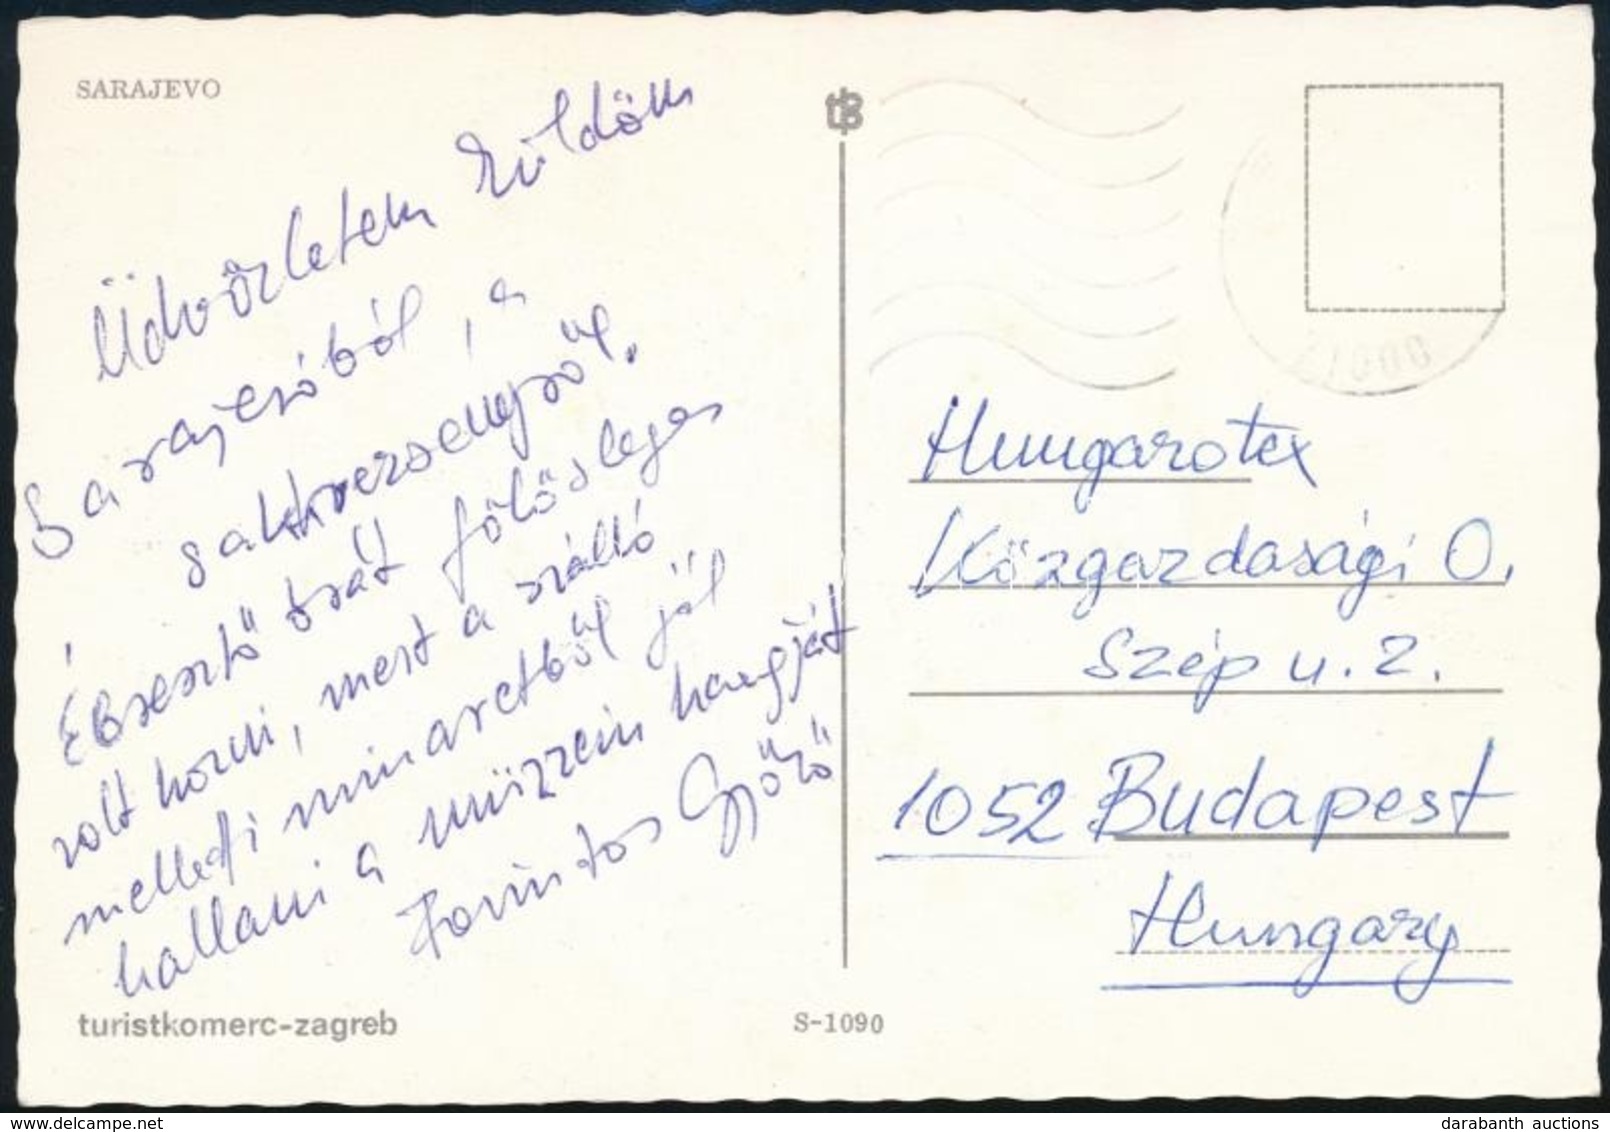 SARAJEVO
Üdvözletem küldöm
Sarajevóból, a
sakkversenyről.
Ébresztő órát fölösleges
volt hozni, mert a szálló
melletti minaretből jól
hallani a müezzein hangját
Forintos Győző
turistkomerc-zagreb
S-1090
71000
Hungarotex
Közgazdasági O.
Szép u. 2.
1052 Budapest
Hungary
www.delcampe.net
darabanth auctions